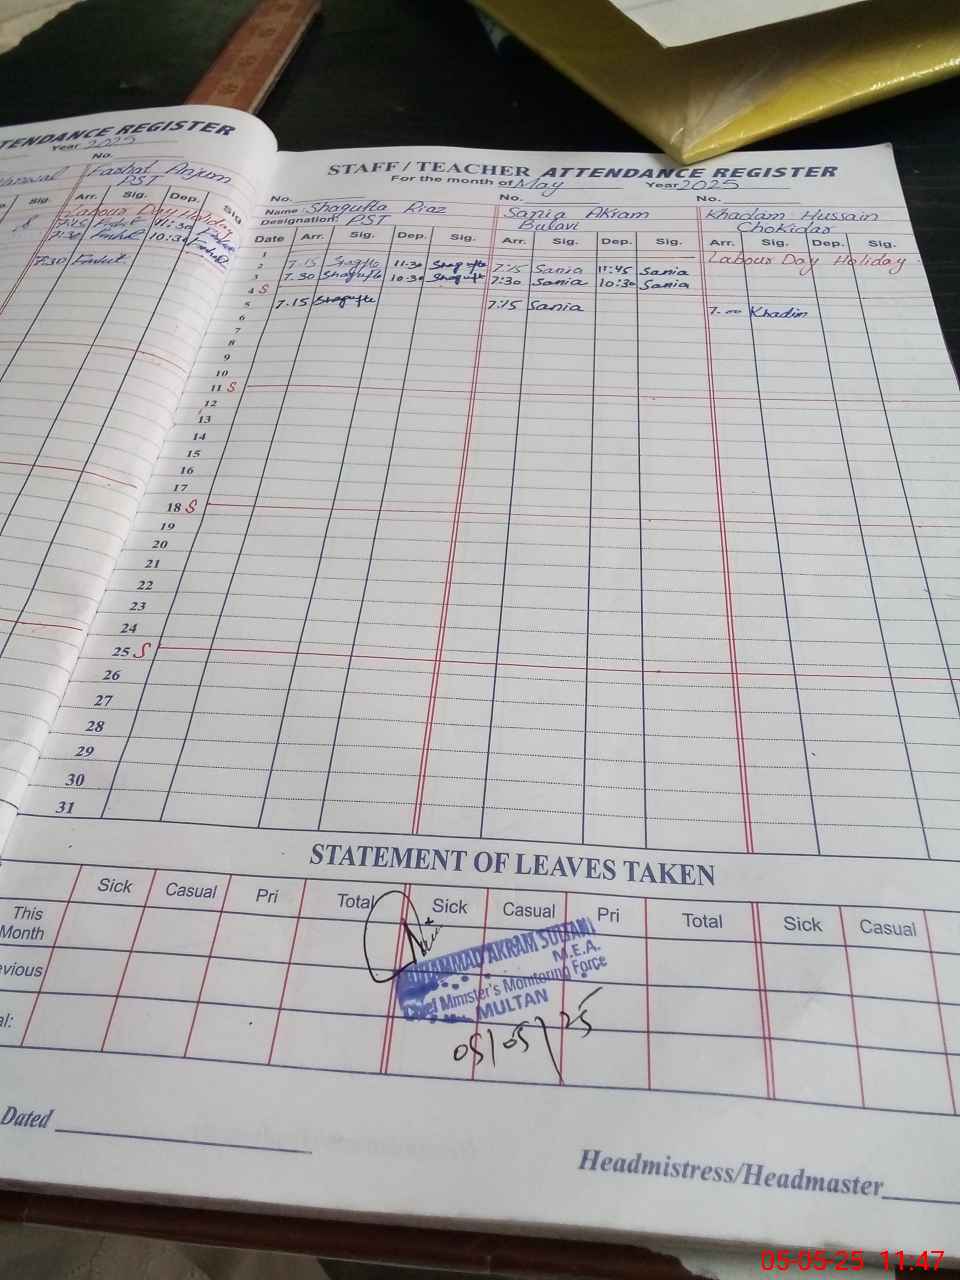 TTENDANCE REGISTER
Year 2025
No.
Fashat Anjum
PST
Sig. Arr. Sig. Dep. Sig
Labour Day Holiday
7:45 11:30
7:30 10:30
7:30
STAFF / TEACHER ATTENDANCE REGISTER
For the month of May Year 2025
No. No. No.
Name Shagufta Riaz Sania Akram Khadam Hussain
Designation: PST Bulavi Chokidar
Date Arr. Sig. Dep. Sig. Arr. Sig. Dep. Sig. Arr. Sig. Dep. Sig.
1 Labour Day Holiday
2 7.15 Shagufta 11:30 Shagufta 7:15 Sania 11:45 Sania
3 7.30 Shagufta 10:30 Shagufta 7:30 Sania 10:30 Sania
4 S
5 7.15 Shagufta 7:15 Sania 7.00 Khadim
6
7
8
9
10
11 S
12
13
14
15
16
17
18 S
19
20
21
22
23
24
25 S
26
27
28
29
30
31
STATEMENT OF LEAVES TAKEN
Sick Casual Pri Total Sick Casual Pri Total Sick Casual
This
Month
evious
al:
MUHAMMAD AKRAM SULTAN
M.E.A.
Chief Minister's Monitoring Force
MULTAN
05/05/25
Dated
Headmistress/Headmaster
05-05-25 11:47